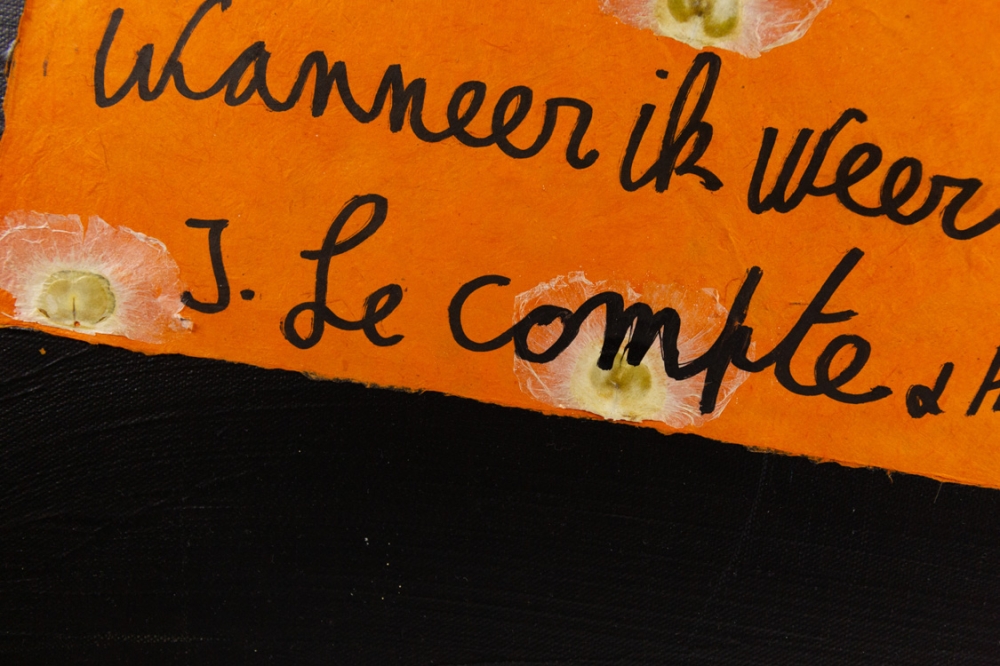 Wanneer ik weer
J. Le Compte &